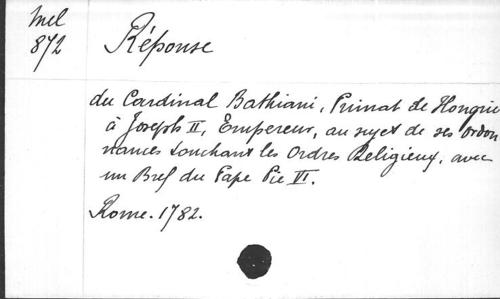 Mel
872
Réponse
du Cardinal Bathiani, Primat de Hongrie
à Joseph II, Empereur, au sujet de ses ordon
nances touchant les Ordres Religieux, avec
un Bref du Pape Pie VI.
Rome. 1782.